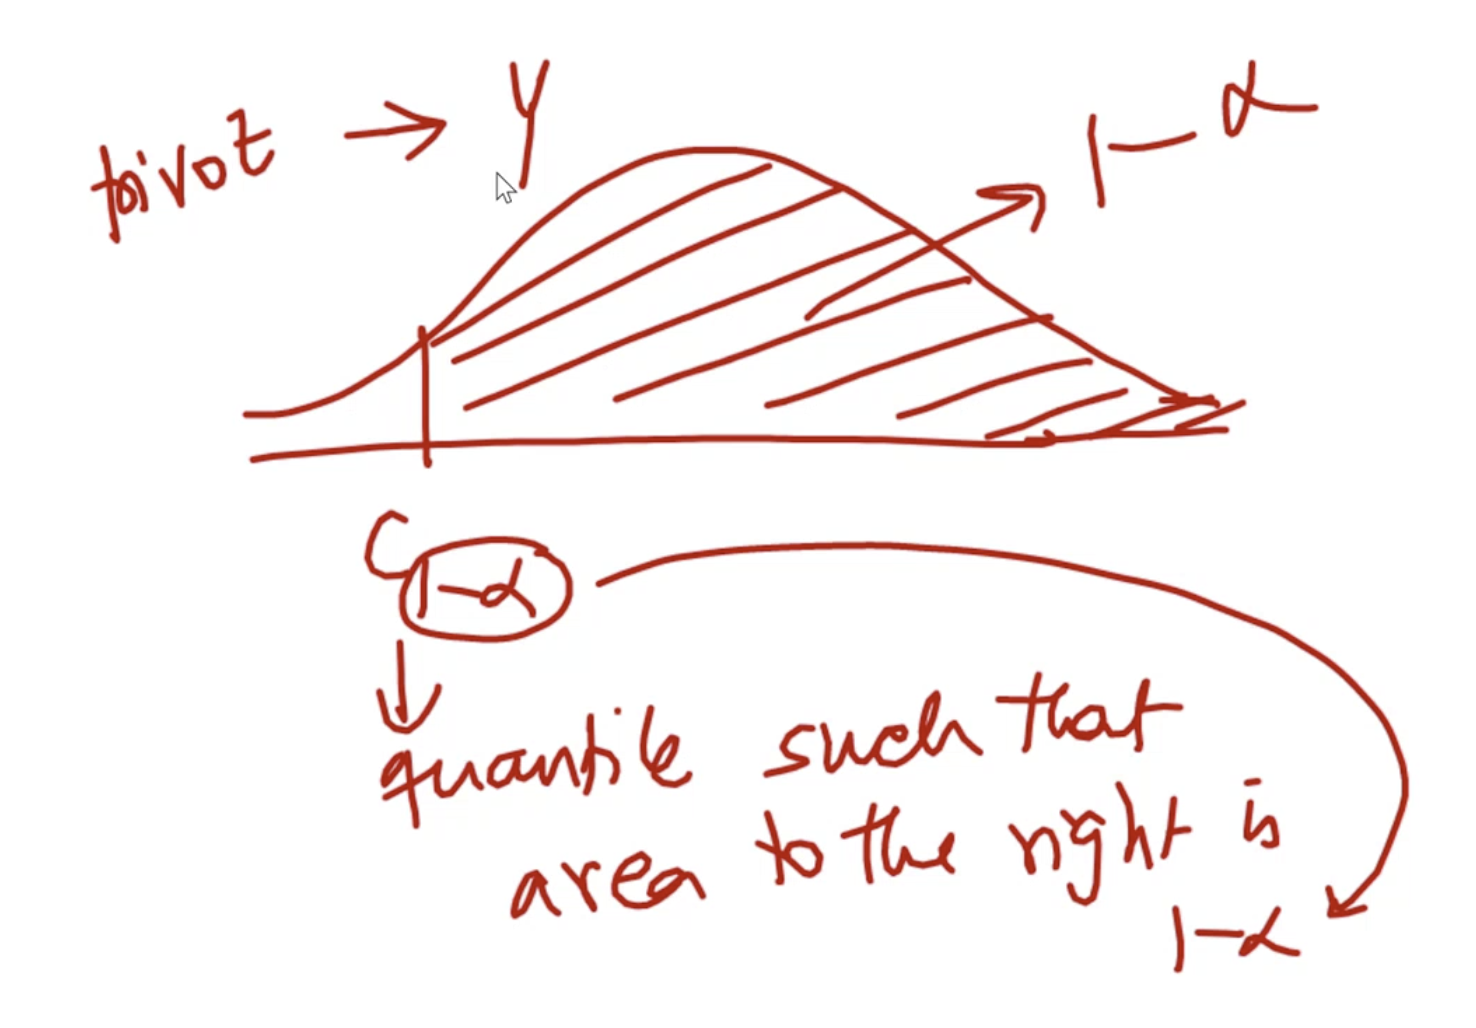 pivot → Y
1-α
C1-α
quantile such that
area to the right is
1-α